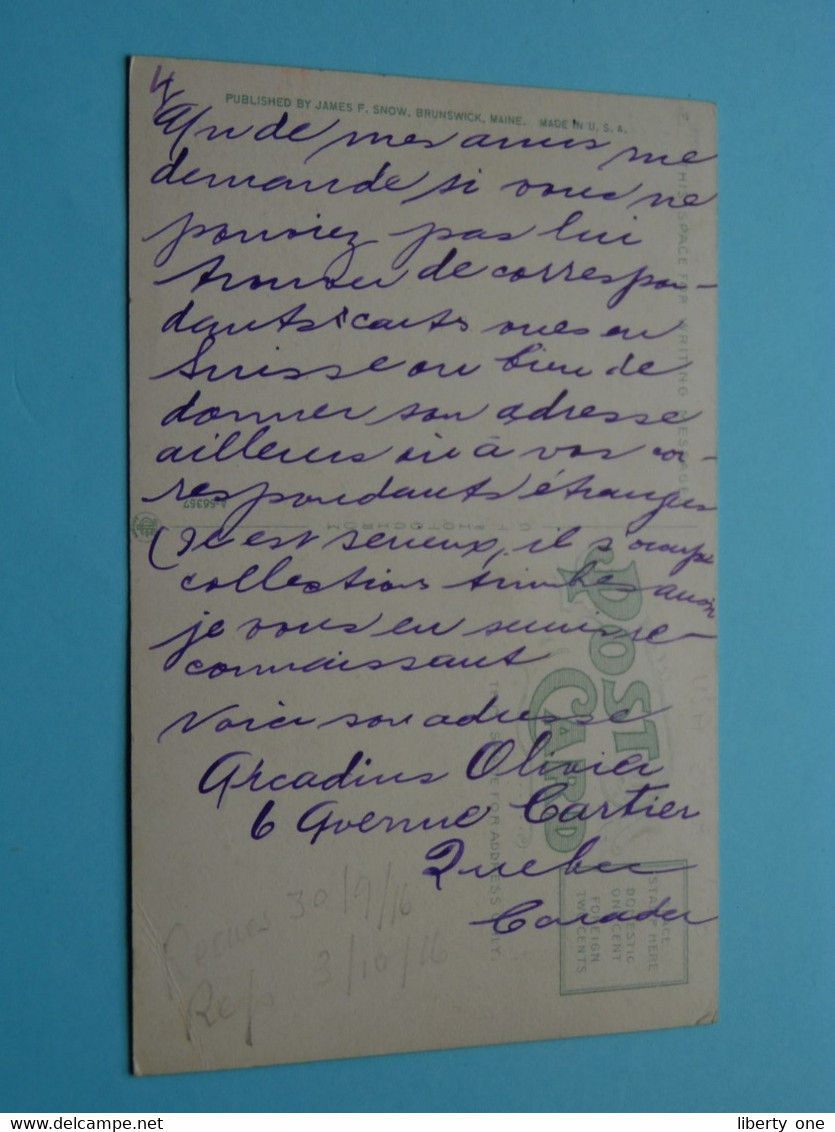 4
PUBLISHED BY JAMES F. SNOW, BRUNSWICK, MAINE. MADE IN U. S. A.
Un de mes amis me
demande si vous ne
pouviez pas lui
trouver de correspon-
dants cartes vues en
Suisse ou bien de
donner son adresse
ailleurs où à vos cor-
respondants étrangers
(Il est serieux, il s'occupe
collection timbres aussi
je vous en
connaissant
Voici son adresse
Arcadius Olivier
6 Avenue Cartier
Quebec
Canada
30/9/16
Rep 3/10/16
THIS SPACE FOR WRITING MESSAGE
A-56357
POST CARD
THIS SPACE FOR ADDRESS ONLY.
PLACE
STAMP HERE
DOMESTIC
ONE CENT
FOREIGN
TWO CENTS
liberty one